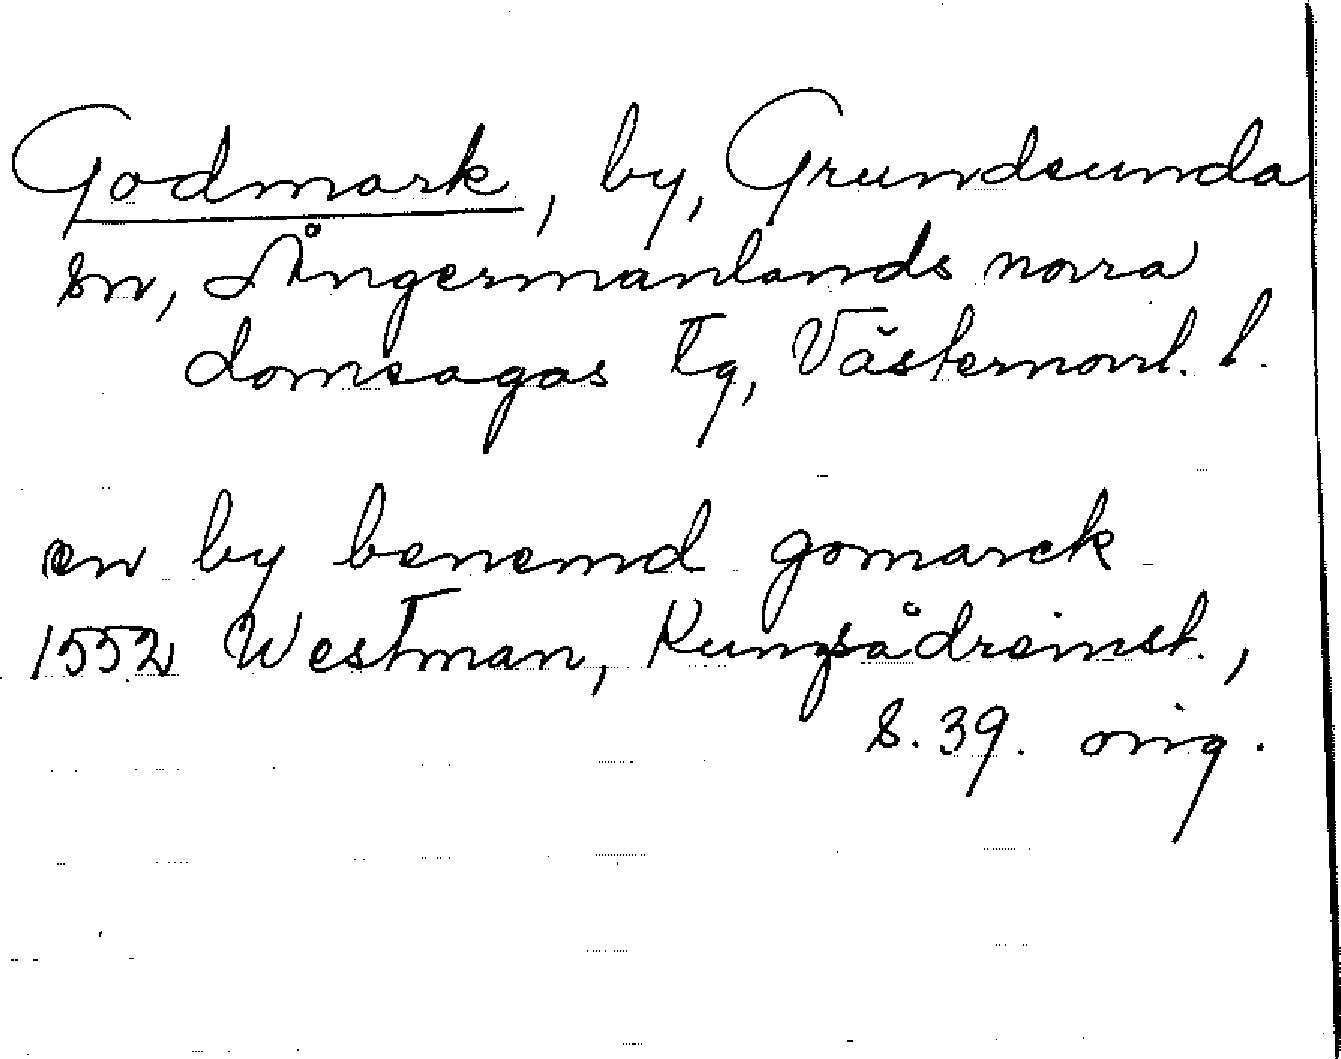 Godmark, by, Grundsunda
sn, Ångermanlands norra
domsagas tg, Västernorrl. l.
en by benemd gomarck
1552 Westman, Kungsådreinst.,
s. 39. orig.